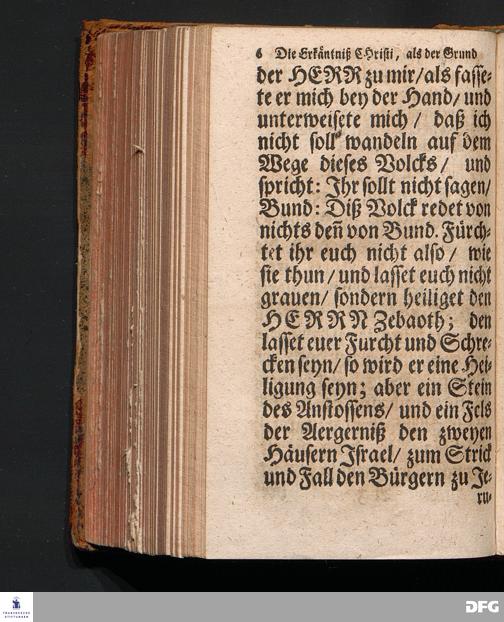 6 Die Erkäntniß CHristi, als der Grund
der HERR zu mir/als fasse-
te er mich bey der Hand/ und
unterweisete mich / daß ich
nicht soll wandeln auf dem
Wege dieses Volcks/ und
spricht: Ihr sollt nicht sagen/
Bund: Diß Volck redet von
nichts deñ von Bund. Fürch-
tet ihr euch nicht also/ wie
sie thun/ und lasset euch nicht
grauen/ sondern heiliget den
HERRN Zebaoth; den
lasset euer Furcht und Schre-
cken seyn/ so wird er eine Hei-
ligung seyn; aber ein Stein
des Anstossens/ und ein Fels
der Aergerniß den zweyen
Häusern Israel/ zum Strick
und Fall den Bürgern zu Je-
ru-
FRANCKESCHE
STIFTUNGEN
DFG